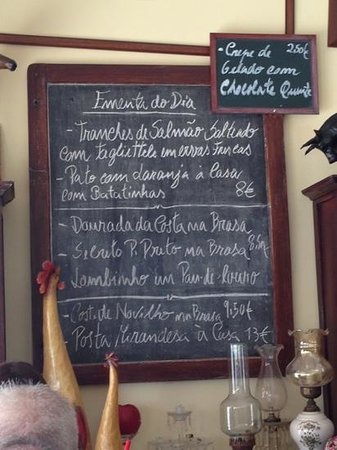 - Crepe de 250€
Gelado com
Chocolate Quente
Ementa do Dia
- Tranches de Salmão Salteado
com tagliettele em ervas Frescas
- Pato com Laranja à Casa
com Batatinhas 8€
- Dourada da Costa na Brasa
- Secreto P. Preto na Brasa 8,5€
- Lombinho um Pau de Louro
- Costa de Novilho na Brasa 9,50€
- Posta Mirandesa à Casa 13€